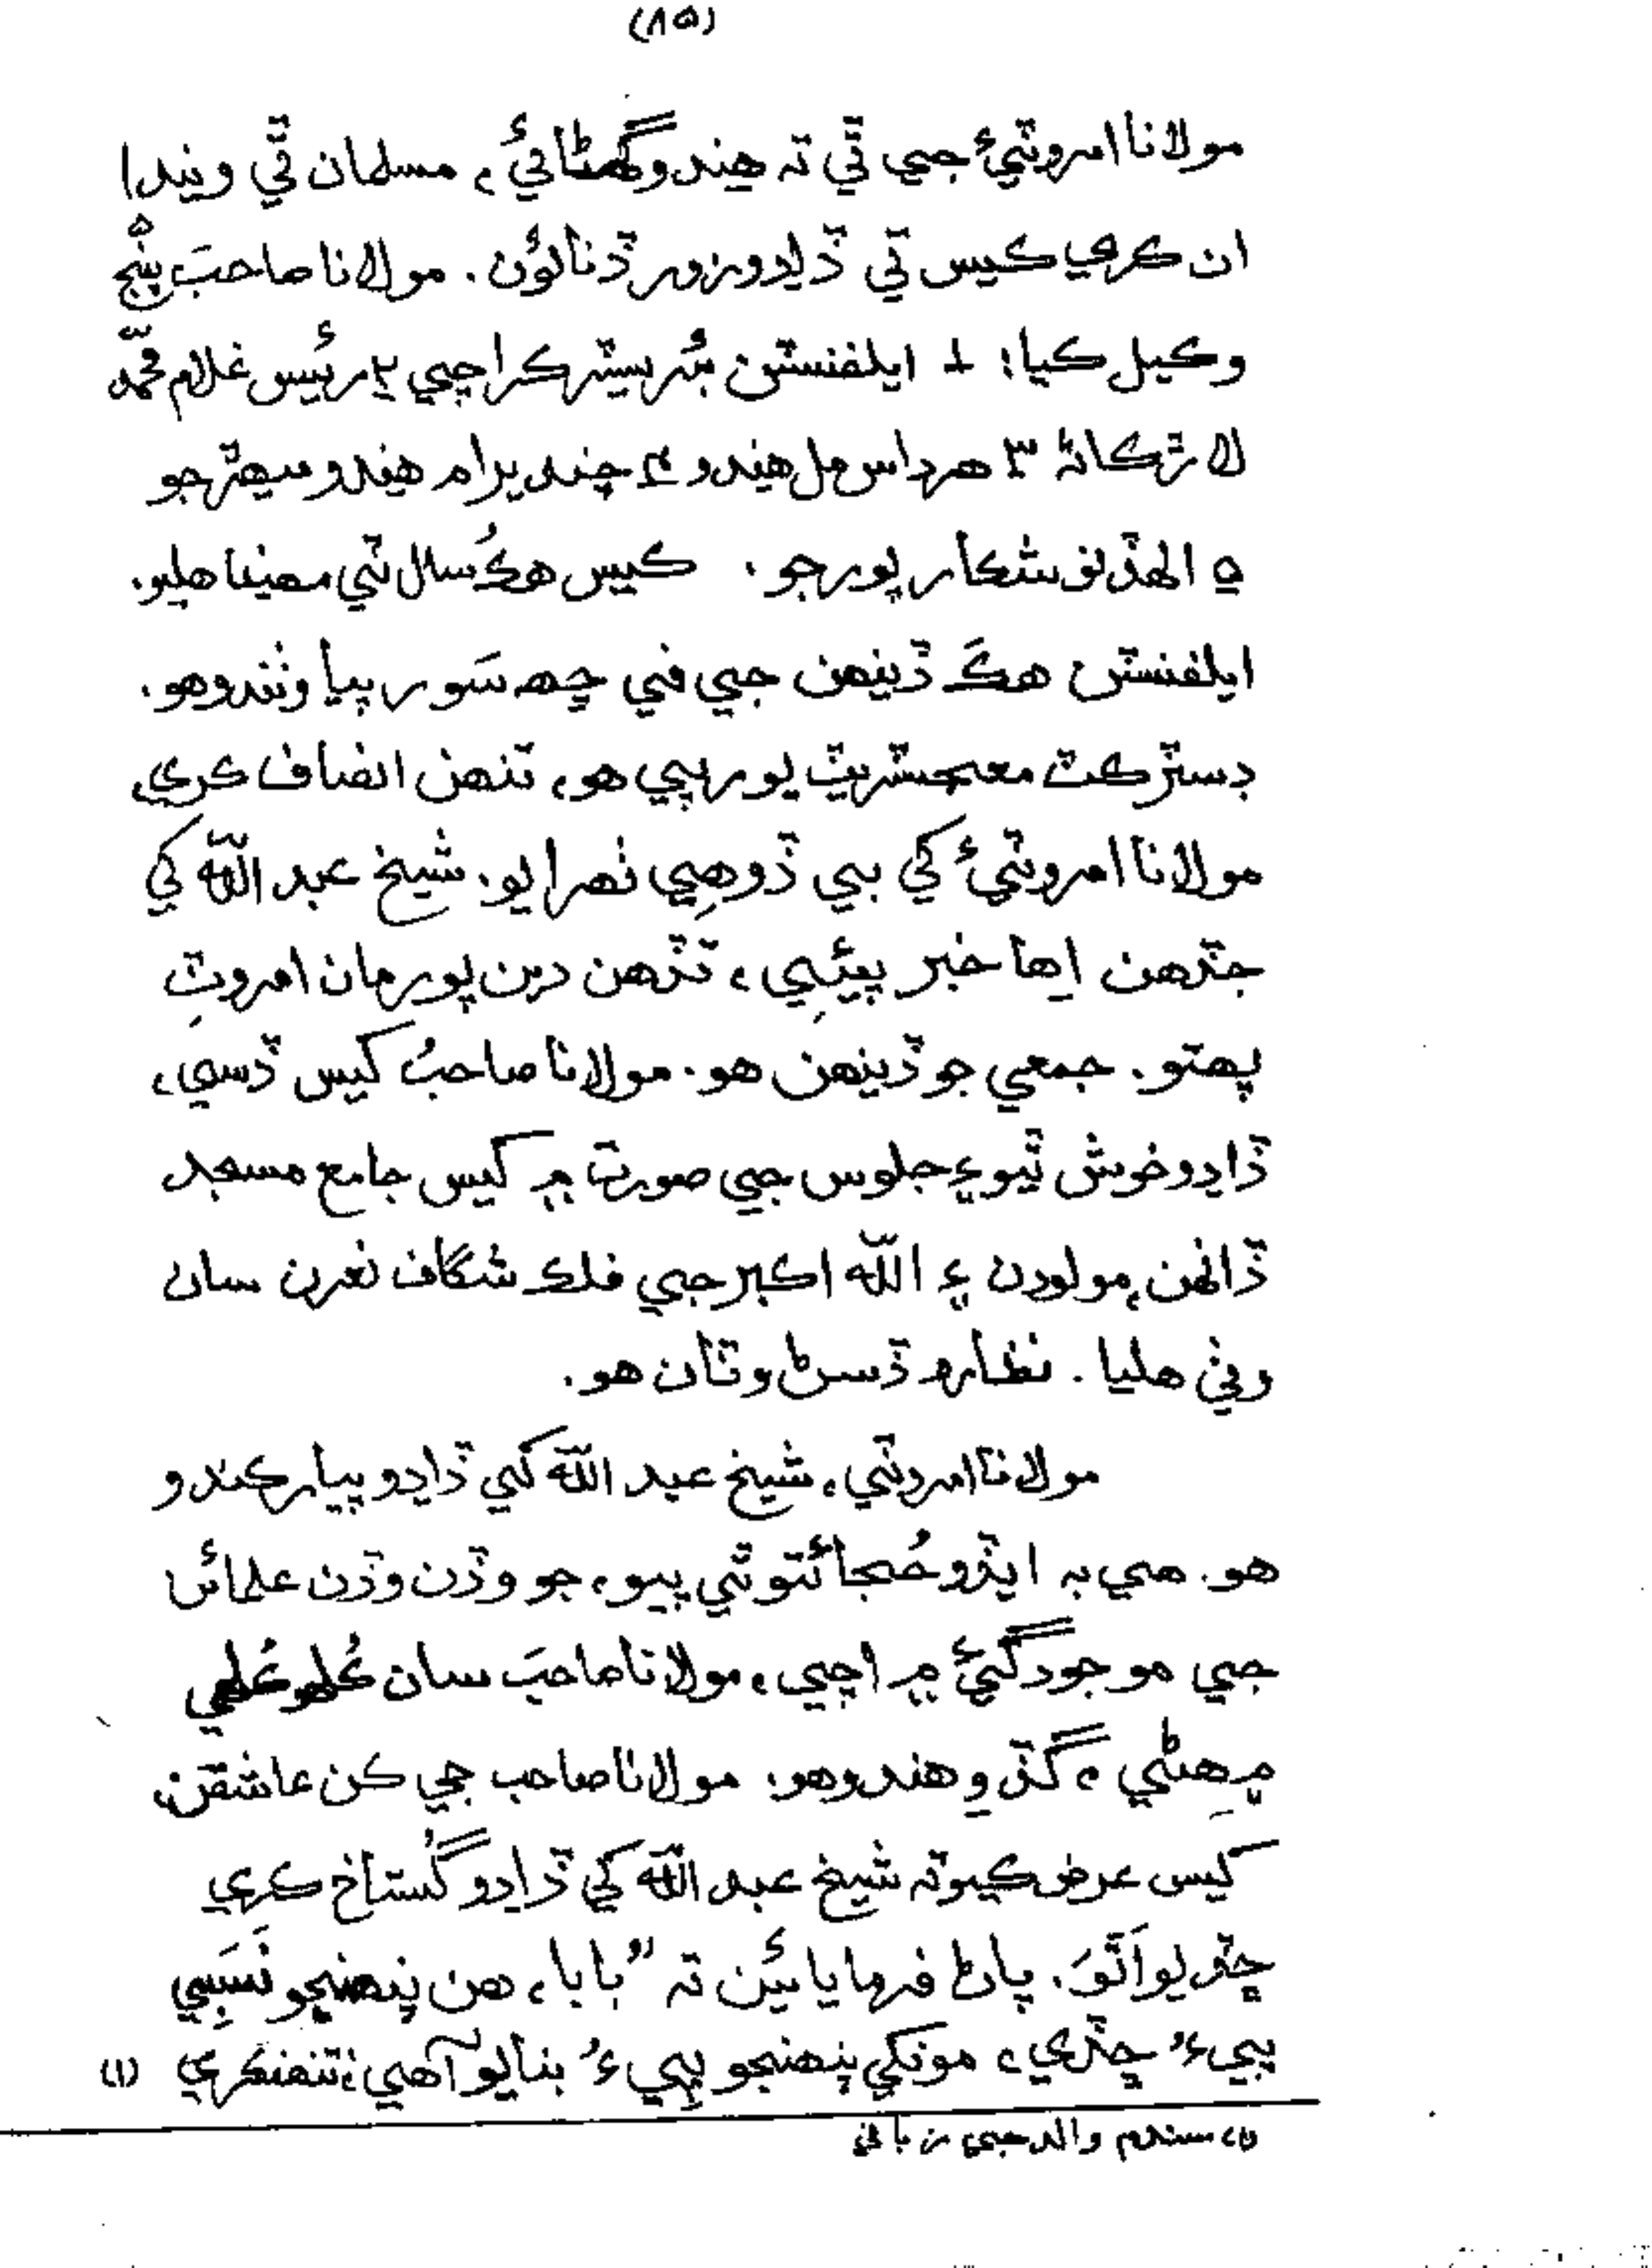 (۸۵)
مولانا امروٽيءَ جي ٿي ته هندو گھٽائي، مسلمان ٿي ويندا
ان ڪري ڪيس تي ڏاڍو زور ڏنائون. مولانا صاحبَ پنج
وڪيل ڪيا: ۱ ايلفنسٽن بئريسٽر ڪراچي ۲ رئيس غلام محمّد
لاڙڪاڻه ۳ هرداس مل هندو ۴ چنديرام هندو سيهڙجو
۵ الهڏنو شڪارپور جو. ڪيس هڪُ سال ٽي مهينا هليو.
ايلفنسٽن هڪَ ڏينهن جي في ڇهه سَو رپيا وٺندو هو.
ڊسٽرڪٽ مئجسٽريٽ يورپي هو، تنهن انصاف ڪري
مولانا امروٽيءَ کي بي ڏوهِي ٺهرايو. شيخ عبد الله کي
جڏهن اِها خبر پيئِي، تڏهن دين پور مان امروٽِ
پهتو. جمعي جو ڏينهن هو. مولانا صاحبُ کيس ڏسي،
ڏاڍو خوش ٿيو ۽ جلوس جي صورت ۾ کيس جامع مسجد
ڏانهن، مولودن ۽ الله اڪبر جي فلڪ شگاف نعرن سان
وٺي هليا. نظاره ڏسڻ وٽان هو.
مولانا امروٽي، شيخ عبد الله کي ڏاڍو پيار ڪندو
هو. هي به ايڏو حُجائتو ٿي پيو، جو وڏن وڏن علمائن
جي موجودگيءَ ۾ اچي، مولانا صاحبَ سان ڪُلهو ڪُلهي
۾ هڻي، گڏ وِهندو هو. مولانا صاحب جي ڪن عاشقن،
کيس عرض ڪيو ته شيخ عبد الله کي ڏاڍو گُستاخ ڪري
ڇڏيو اَٿوَ. پاڻ فرمايائين ته ”بابا، هن پنهنجو نَسَبِي
پيءُ ڇڏي، مونکي پنهنجو پِيءُ بنايو آهي؛ تنهنڪري (۱)
(۱) سندم والد جي زباني